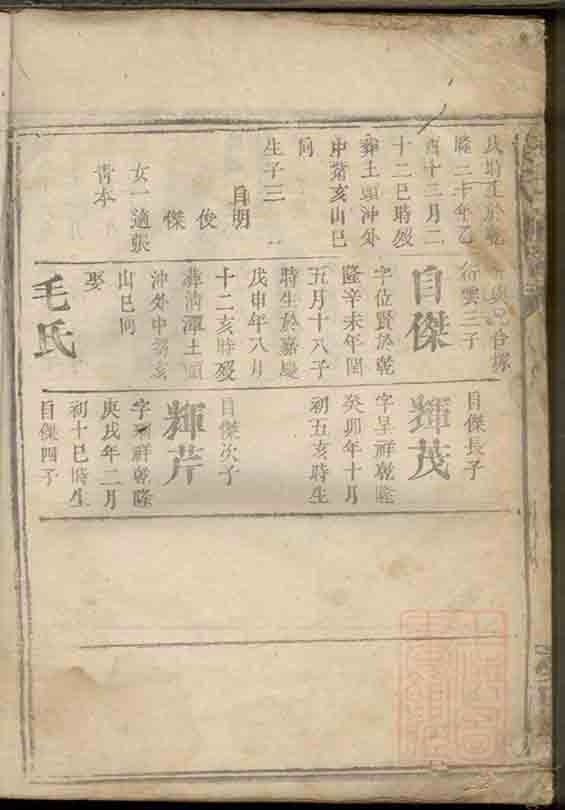 氏時生於乾
隆二十年乙
酉十三月二
十二巳時歿
葬土頭沖外
中癸亥山巳
向
生子三
自明
俊
傑
女一適張
青本
合塚
雲三子
自傑
字位賢於乾
隆辛未年閏
五月十八子
時生於嘉慶
戊申年八月
十二亥時歿
葬清潭土頭
沖外中癸亥
山巳向
娶
毛氏
自傑長子
輝茂
字呈祥乾隆
癸卯年十月
初五亥時生
自傑次子
輝芹
字祥乾隆
庚戌年二月
初十巳時生
自傑四子